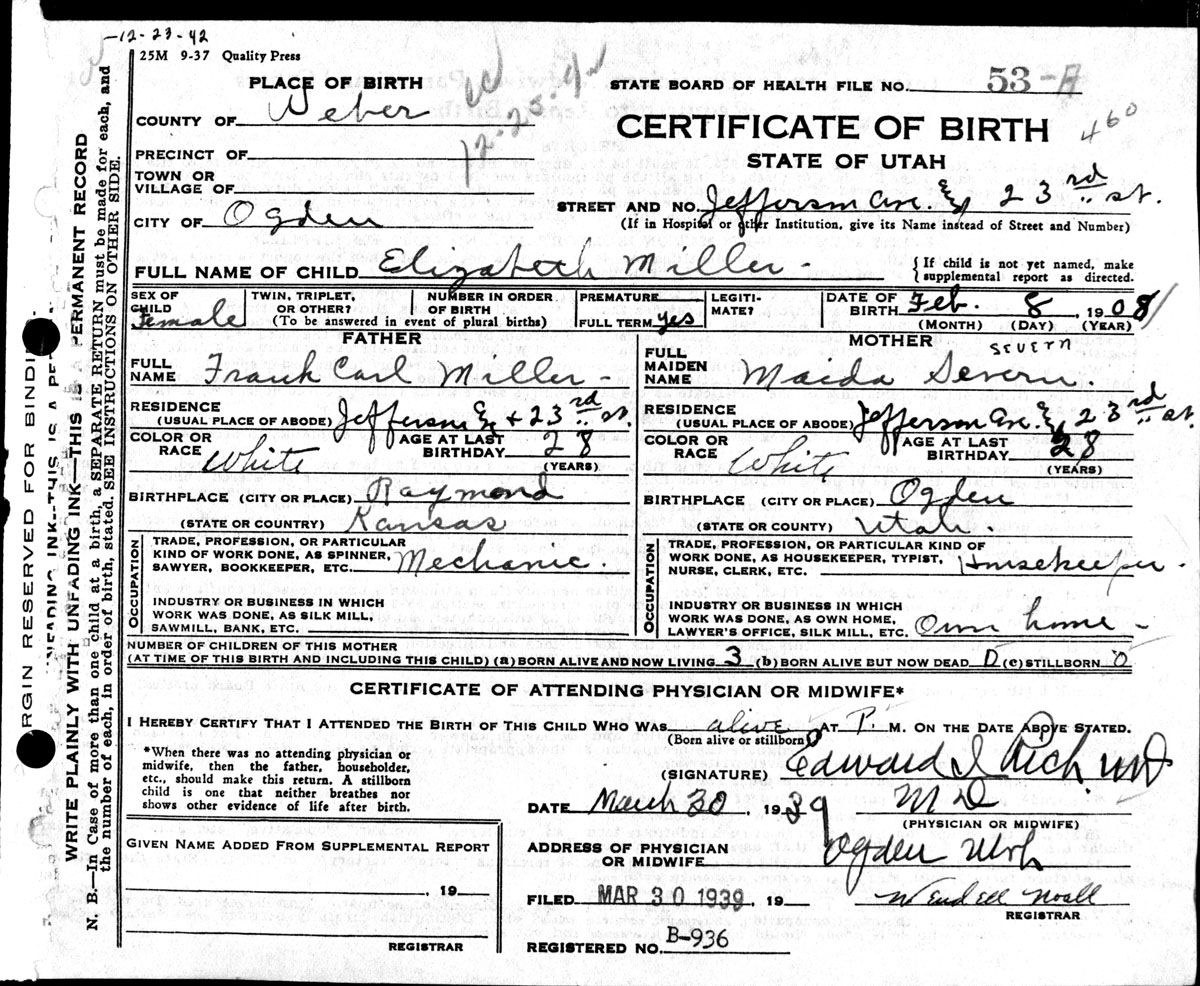 -12-23-42
25M 9-37 Quality Press
PLACE OF BIRTH
COUNTY OF Weber
PRECINCT OF
TOWN OR
VILLAGE OF
CITY OF Ogden
12-23-42
STATE BOARD OF HEALTH FILE NO. 53-A
460
CERTIFICATE OF BIRTH
STATE OF UTAH
STREET AND NO. Jefferson Ave. & 23rd st.
(If in Hospital or other Institution, give its Name instead of Street and Number)
FULL NAME OF CHILD Elizabeth Miller
{If child is not yet named, make
supplemental report as directed.
SEX OF CHILD Female
TWIN, TRIPLET, OR OTHER?
NUMBER IN ORDER OF BIRTH
(To be answered in event of plural births)
PREMATURE
FULL TERM yes
LEGITI-MATE?
DATE OF BIRTH Feb. 8, 1908
(MONTH) (DAY) (YEAR)
FATHER
FULL NAME Frank Carl Miller
RESIDENCE
(USUAL PLACE OF ABODE) Jefferson & + 23rd st.
COLOR OR RACE White
AGE AT LAST BIRTHDAY 28
(YEARS)
BIRTHPLACE (CITY OR PLACE) Raymond
(STATE OR COUNTRY) Kansas
OCCUPATION
TRADE, PROFESSION, OR PARTICULAR
KIND OF WORK DONE, AS SPINNER,
SAWYER, BOOKKEEPER, ETC. Mechanic.
INDUSTRY OR BUSINESS IN WHICH
WORK WAS DONE, AS SILK MILL,
SAWMILL, BANK, ETC.
MOTHER
SEVERN
FULL MAIDEN NAME Maeda Severn.
RESIDENCE
(USUAL PLACE OF ABODE) Jefferson Ave. & 23rd st.
COLOR OR RACE White
AGE AT LAST BIRTHDAY 28
(YEARS)
BIRTHPLACE (CITY OR PLACE) Ogden
(STATE OR COUNTRY) Utah.
OCCUPATION
TRADE, PROFESSION, OR PARTICULAR KIND OF
WORK DONE, AS HOUSEKEEPER, TYPIST,
NURSE, CLERK, ETC. Housekeeper.
INDUSTRY OR BUSINESS IN WHICH
WORK WAS DONE, AS OWN HOME,
LAWYER'S OFFICE, SILK MILL, ETC. Own home
NUMBER OF CHILDREN OF THIS MOTHER
(AT TIME OF THIS BIRTH AND INCLUDING THIS CHILD) (a) BORN ALIVE AND NOW LIVING 3 (b) BORN ALIVE BUT NOW DEAD 0 (c) STILLBORN 0
CERTIFICATE OF ATTENDING PHYSICIAN OR MIDWIFE*
I HEREBY CERTIFY THAT I ATTENDED THE BIRTH OF THIS CHILD WHO WAS alive AT P. M. ON THE DATE ABOVE STATED.
(Born alive or stillborn)
*When there was no attending physician or
midwife, then the father, householder,
etc., should make this return. A stillborn
child is one that neither breathes nor
shows other evidence of life after birth.
(SIGNATURE) Edward I Rich MD
DATE March 30, 1939 MD
(PHYSICIAN OR MIDWIFE)
ADDRESS OF PHYSICIAN
OR MIDWIFE Ogden Utah
FILED MAR 30 1939, 19 Wendell Noall
REGISTRAR
REGISTERED NO. B-936
GIVEN NAME ADDED FROM SUPPLEMENTAL REPORT
, 19
REGISTRAR
ARGIN RESERVED FOR BINDI
NFADING INK--THIS IS A PE
WRITE PLAINLY WITH UNFADING INK--THIS IS A PERMANENT RECORD
N. B.--In Case of more than one child at a birth, a SEPARATE RETURN must be made for each, and
the number of each, in order of birth, stated. SEE INSTRUCTIONS ON OTHER SIDE.